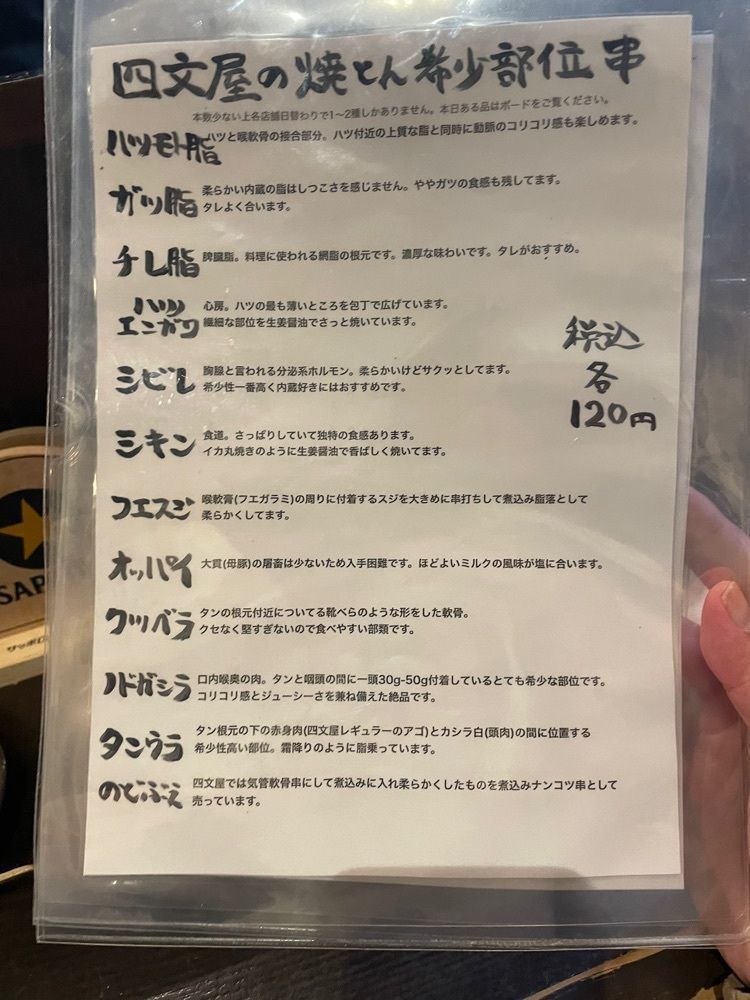 四文屋の焼とん希少部位串
本数少ない上各店舗日替わりで1〜2種しかありません。本日ある品はボードをご覧ください。
ハツモト脂
ハツと喉軟骨の接合部分。ハツ付近の上質な脂と同時に動脈のコリコリ感も楽しめます。
ガツ脂
柔らかい内蔵の脂はしつこさを感じません。ややガツの食感も残してます。
タレよく合います。
チレ脂
脾臓脂。料理に使われる網脂の根元です。濃厚な味わいです。タレがおすすめ。
ハツ
エンガワ
心房。ハツの最も薄いところを包丁で広げています。
繊細な部位を生姜醤油でさっと焼いています。
税込
各
120円
シビレ
胸腺と言われる分泌系ホルモン。柔らかいけどサクッとしてます。
希少性一番高く内蔵好きにはおすすめです。
シキン
食道。さっぱりしていて独特の食感あります。
イカ丸焼きのように生姜醤油で香ばしく焼いてます。
フエスジ
喉軟膏(フエガラミ)の周りに付着するスジを大きめに串打ちして煮込み脂落として
柔らかくしてます。
オッパイ
大貫(母豚)の屠畜は少ないため入手困難です。ほどよいミルクの風味が塩に合います。
クツベラ
タンの根元付近についてる靴べらのような形をした軟骨。
クセなく堅すぎないので食べやすい部類です。
ノドガシラ
口内喉奥の肉。タンと咽頭の間に一頭30g-50g付着しているとても希少な部位です。
コリコリ感とジューシーさを兼ね備えた絶品です。
タンウラ
タン根元の下の赤身肉(四文屋レギュラーのアゴ)とカシラ白(頭肉)の間に位置する
希少性高い部位。霜降りのように脂乗っています。
のどぶえ
四文屋では気管軟骨串にして煮込みに入れ柔らかくしたものを煮込みナンコツ串として
売っています。
SAP
サッポロ